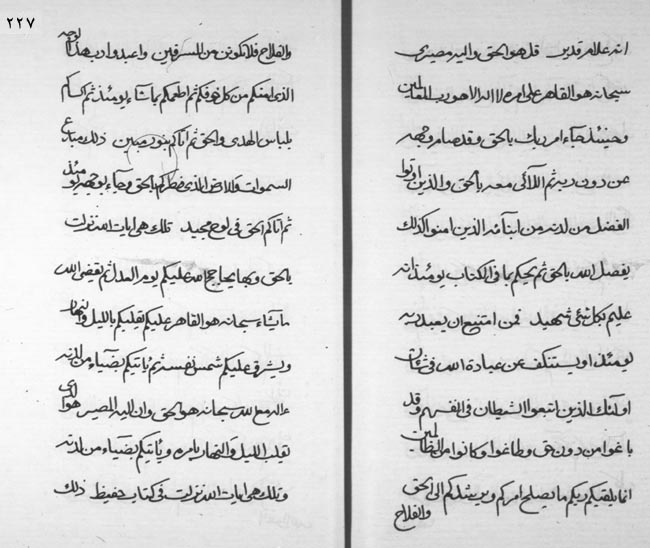 ٢٢٧
انه علام قدير قل هو الحق واليه مصيري
سبحانه هو القاهر على امره لا اله الا هو رب العالمين
وحينئذ جاء امر ربك بالحق وقد صام وجهه
عن دون ربه ثم اللآئي معه بالحق والذين اوتوا
الفضل من لدنه من ابنآئه الذين امنوا كذلك
يفصل الله بالحق ثم يحكم بما في الكتاب يومئذ انه
عليم بكل شئ شهيد فمن امتنع ان يعبد ربه
يومئذ او يستنكف عن عبادة الله في شان
اولئك الذين اتبعوا الشيطان في انفسهم وقد
باغوا من دون حق وطاغوا وكانوا من الظالمين
انما يلقيكم ربكم ما يصلح امركم ويرشدكم الى الحق
والفلاح
والفلاح فلا تكونن من المسرفين واعبدوا رب هذا لوجه
الذي امنكم من كل خوفكم ثم اطعمكم بما شاء يومئذ ثم كساكم
بلباس الهدى والحق ثم اتاكم بنور مبين ذلك مبدع
السموات والارض الذي فطركم بالحق وجاء بوجهه يومئذ
ثم اتاكم الحق في لوح مجيد تلك هي ايات الله نزلت
بالحق وبها يحاجج الله عليكم يوم العدل ثم يقضي الله
ما يشاء سبحانه هو القاهر عليكم يقلبكم بالليل والنهار
ويشرق عليكم شمس نفسه ثم يأتيكم بضياء من لدنه
ءاله مع الله سبحانه هو الحق وان اليه المصير هو الذي
يقلب الليل والنهار بامره ويأتيكم بضياء من لدنه
وتلك هي ايات الله نزلت في كتاب حفيظ ذلك